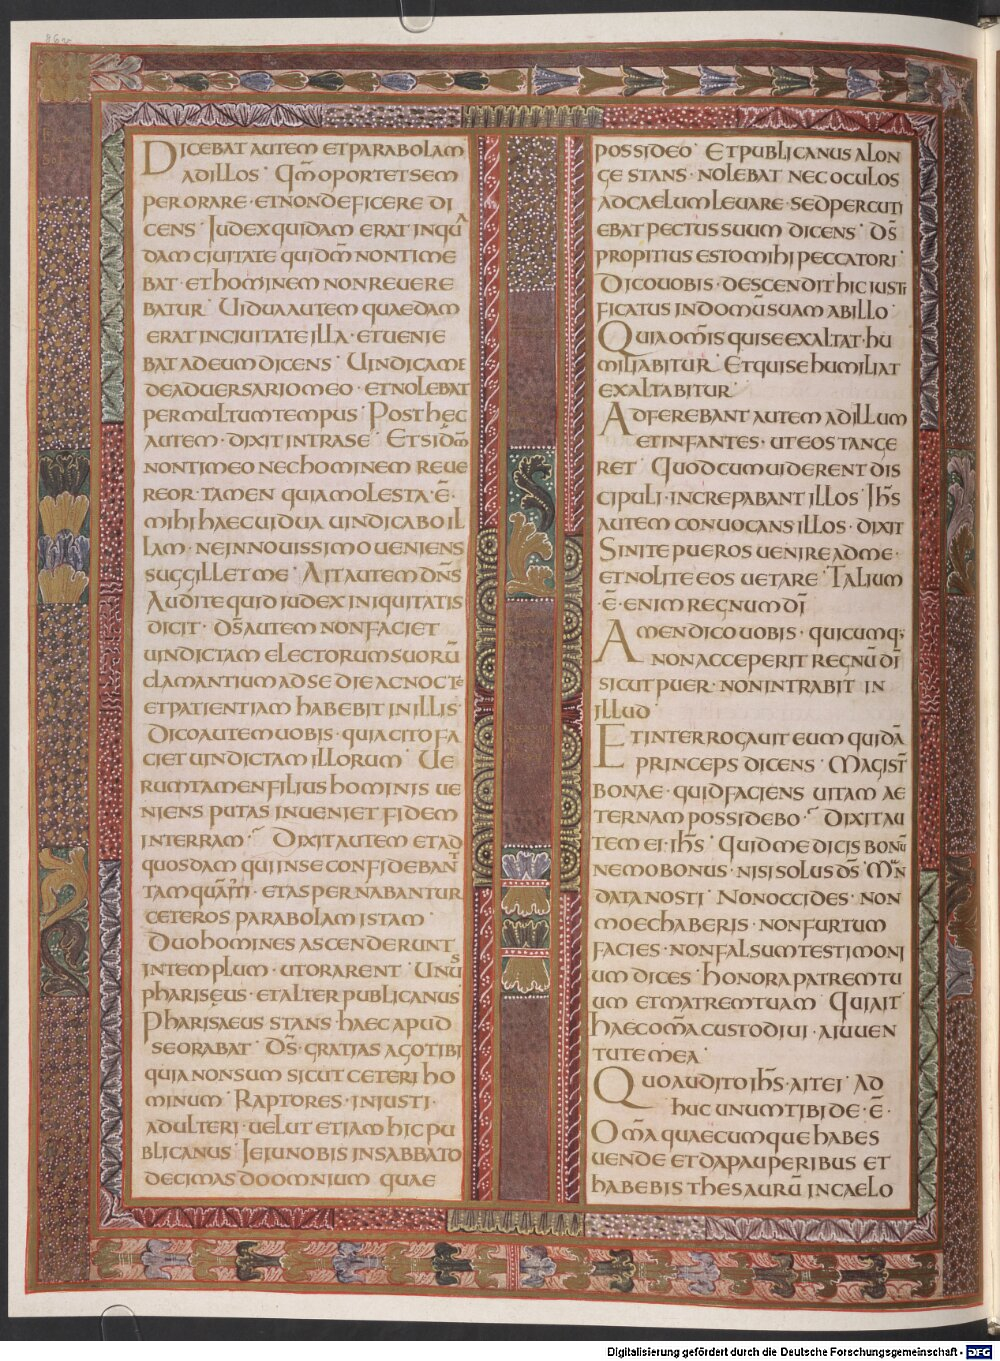 DICEBAT AUTEM ET PARABOLAM
AD ILLOS · Qm̄ OPORTET SEM
PER ORARE · ET NON DEFICERE DI
CENS · IUDEX QUIDAM ERAT IN QUA
DAM CIUITATE QUI Dm̄ NON TIME
BAT · ET HOMINEM NON REUERE
BATUR · UIDUA AUTEM QUAEDAM
ERAT IN CIUITATE ILLA · ET UENIE
BAT AD EUM DICENS · UINDICA ME
DE ADUERSARIO MEO · ET NOLEBAT
PER MULTUM TEMPUS · POST HEC
AUTEM · DIXIT INTRA SE · ET SI Dm̄
NON TIMEO NEC HOMINEM REUE
REOR · TAMEN QUIA MOLESTA · Ē ·
MIHI HAEC UIDUA UINDICABO IL
LAM · NE IN NOUISSIMO UENIENS
SUGGILLET ME · AIT AUTEM DN̄S
AUDITE QUID IUDEX INIQUITATIS
DICIT · DS̄ AUTEM NON FACIET
UINDICTAM ELECTORUM SUORŪ
CLAMANTIUM AD SE DIE AC NOCTE
ET PATIENTIAM HABEBIT IN ILLIS ·
DICO AUTEM UOBIS · QUIA CITO FA
CIET UINDICTAM ILLORUM · UE
RUM TAMEN FILIUS HOMINIS UE
NIENS PUTAS INUENIET FIDEM
IN TERRAM · DIXIT AUTEM ET AD
QUOSDAM QUI IN SE CONFIDEBANT
TAMQUAM · ET ASPERNABANTUR
CETEROS PARABOLAM ISTAM ·
DUO HOMINES ASCENDERUNT
IN TEMPLUM · UT ORARENT · UNUS
PHARISĘUS · ET ALTER PUBLICANUS
PHARISAEUS STANS HAEC APUD
SE ORABAT · DS̄ · GRATIAS AGO TIBI
QUIA NON SUM SICUT CETERI HO
MINUM · RAPTORES · INIUSTI ·
ADULTERI · UELUT ETIAM HIC PU
BLICANUS · IEIUNO BIS IN SABBATO
DECIMAS DO OMNIUM QUAE
POSSIDEO · ET PUBLICANUS A LON
GE STANS · NOLEBAT NEC OCULOS
AD CAELUM LEUARE · SED PERCUTI
EBAT PECTUS SUUM DICENS · DS̄
PROPITIUS ESTO MIHI PECCATORI ·
DICO UOBIS · DESCENDIT HIC IUSTI
FICATUS IN DOMŪ SUAM AB ILLO ·
QUIA OMIS̄ QUI SE EXALTAT · HU
MILIABITUR · ET QUI SE HUMILIAT
EXALTABITUR ·
ADFEREBANT AUTEM AD ILLUM
ET INFANTES · UT EOS TANGE
RET · QUOD CUM UIDERENT DIS
CIPULI · INCREPABANT ILLOS · IHS̄
AUTEM CONUOCANS ILLOS · DIXIT
SINITE PUEROS UENIRE AD ME ·
ET NOLITE EOS UETARE · TALIUM
· Ē · ENIM REGNUM DĪ
AMEN DICO UOBIS · QUICUMQ;
NON ACCEPERIT REGNŪ DĪ
SICUT PUER · NON INTRABIT IN
ILLUD
ET INTERROGAUIT EUM QUIDĀ
PRINCEPS DICENS · MAGIST̄
BONAE · QUID FACIENS UITAM AE
TERNAM POSSIDEBO · DIXIT AU
TEM EI · IHS̄ · QUID ME DICIS BONŪ
NEMO BONUS · NISI SOLUS DS̄ · MAN
DATA NOSTI · NON OCCIDES · NON
MOECHABERIS · NON FURTUM
FACIES · NON FALSUM TESTIMONI
UM DICES · HONORA PATREM TU
UM ET MATREM TUAM · QUI AIT
HAEC OMA̅ CUSTODIUI · A IUUEN
TUTE MEA ·
QUO AUDITO IHS̄ · AIT EI · AD
HUC UNUM TIBI DE · Ē ·
OMA̅ QUAECUMQUE HABES
UENDE ET DA PAUPERIBUS ET
HABEBIS THESAURŪ IN CAELO
Digitalisierung gefördert durch die Deutsche Forschungsgemeinschaft - DFG